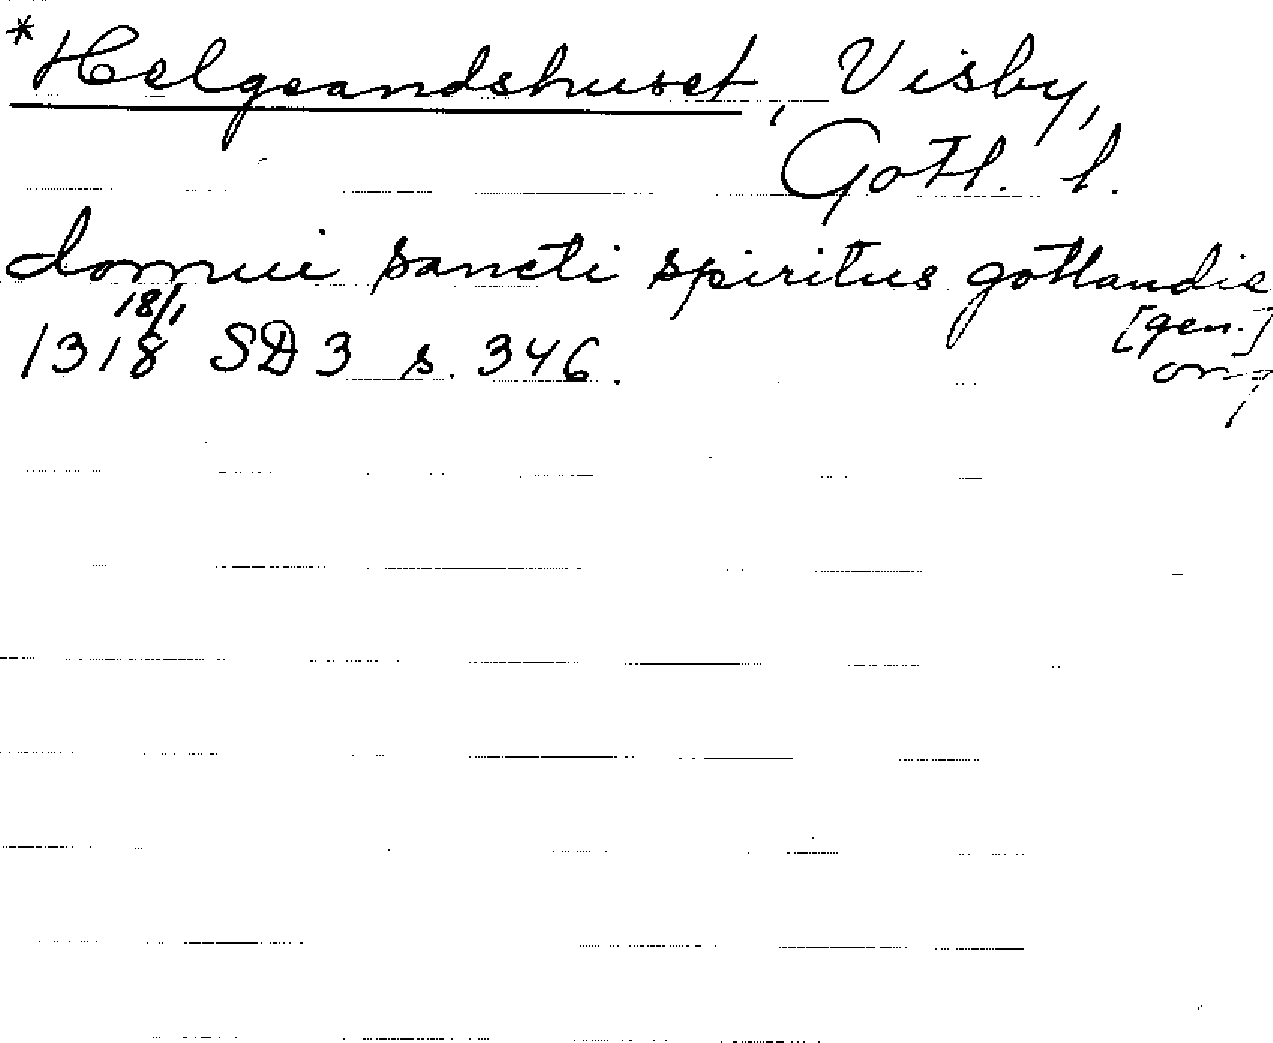 *Helgeandshuset, Visby,
Gotl. l.
domui sancti spiritus gotlandie
[gen.]
18/1
1318 SD 3 s. 346.
or